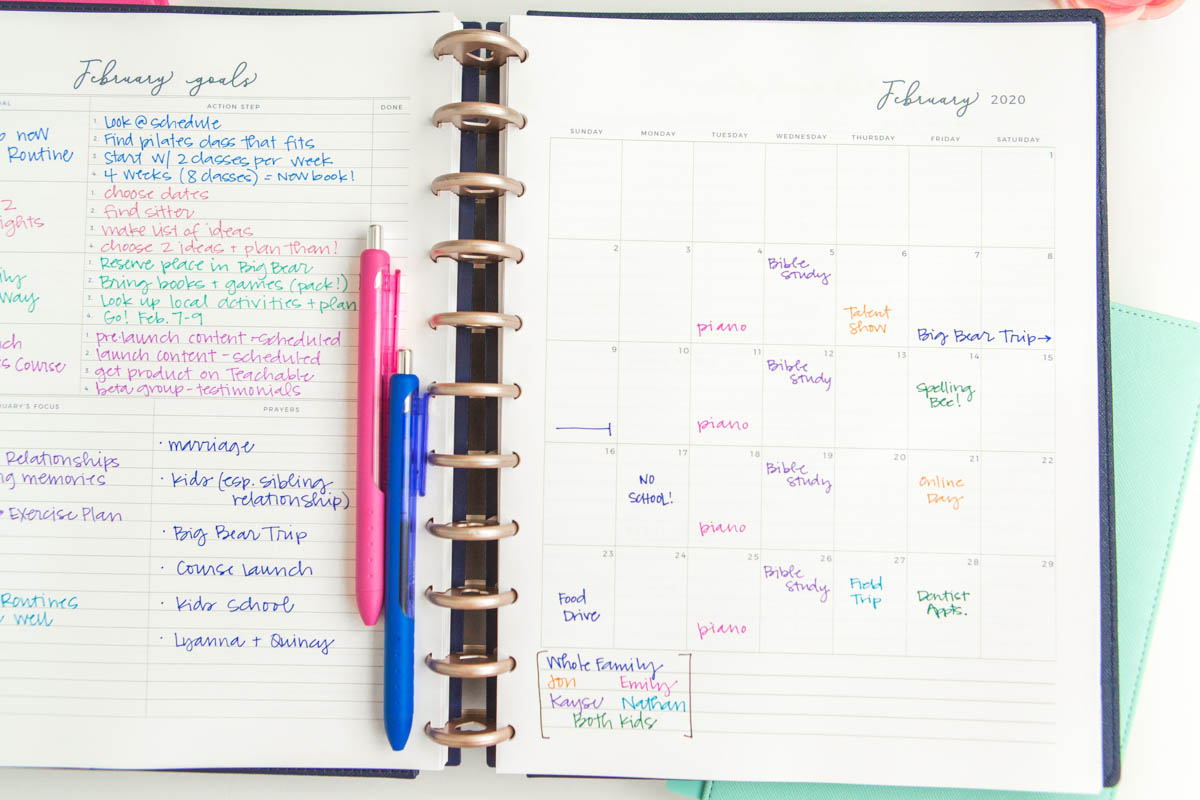 February goals
ACTION STEP
DONE
now
Routine
1. Look @ schedule
2. Find pilates class that fits
3. Start w/ 2 classes per week
4. 4 weeks (8 classes) = New book!
2
1. choose dates
2. find sitter
3. make list of ideas
4. choose 2 ideas + plan than!
1. Reserve place in Big Bear
2. Bring books + games (pack!)
3. Look up local activities + plan
4. Go! Feb. 7-9
Course
1. pre-launch content - scheduled
2. launch content - scheduled
3. get product on Teachable
4. beta group - testimonials
FOCUS
Relationships
memories
Exercise Plan
Routines
well
PRAYERS
· marriage
· Kids (esp. sibling
relationship)
· Big Bear Trip
· Course Launch
· Kids School
· Lyanna + Quincy
February 2020
SUNDAY MONDAY TUESDAY WEDNESDAY THURSDAY FRIDAY SATURDAY
1
2 3 4 5 6 7 8
Bible
Study
Talent
Show
piano
Big Bear Trip→
9 10 11 12 13 14 15
Bible
Study
Spelling
Bee!
piano
16 17 18 19 20 21 22
NO
SCHOOL!
Bible
Study
Online
Day
piano
23 24 25 26 27 28 29
Food
Drive
Bible
Study
Field
Trip
Dentist
Appts.
piano
Whole Family
Jon Emily
Kayse Nathan
Both Kids